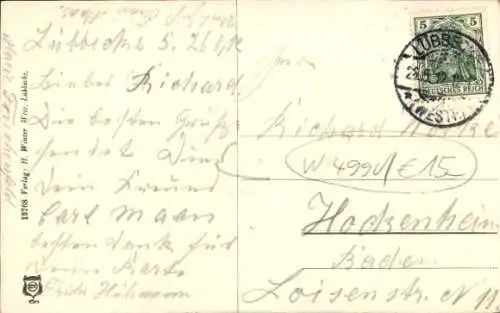 Lübbecke 5. 26.6.12
Lieber Richard
Die besten Grüße
sendet Dir
Dein Freund
Carl Maan
besten Dank für
Deine Karte
Fritz
13768 Verlag: H. Winter Wwe. Lübbecke.
5 5
DEUTSCHES REICH
LÜBBE
(WESTF.)
Richard
W 4990/€15
Hockenheim
Baden
Loisenstr. N 11.